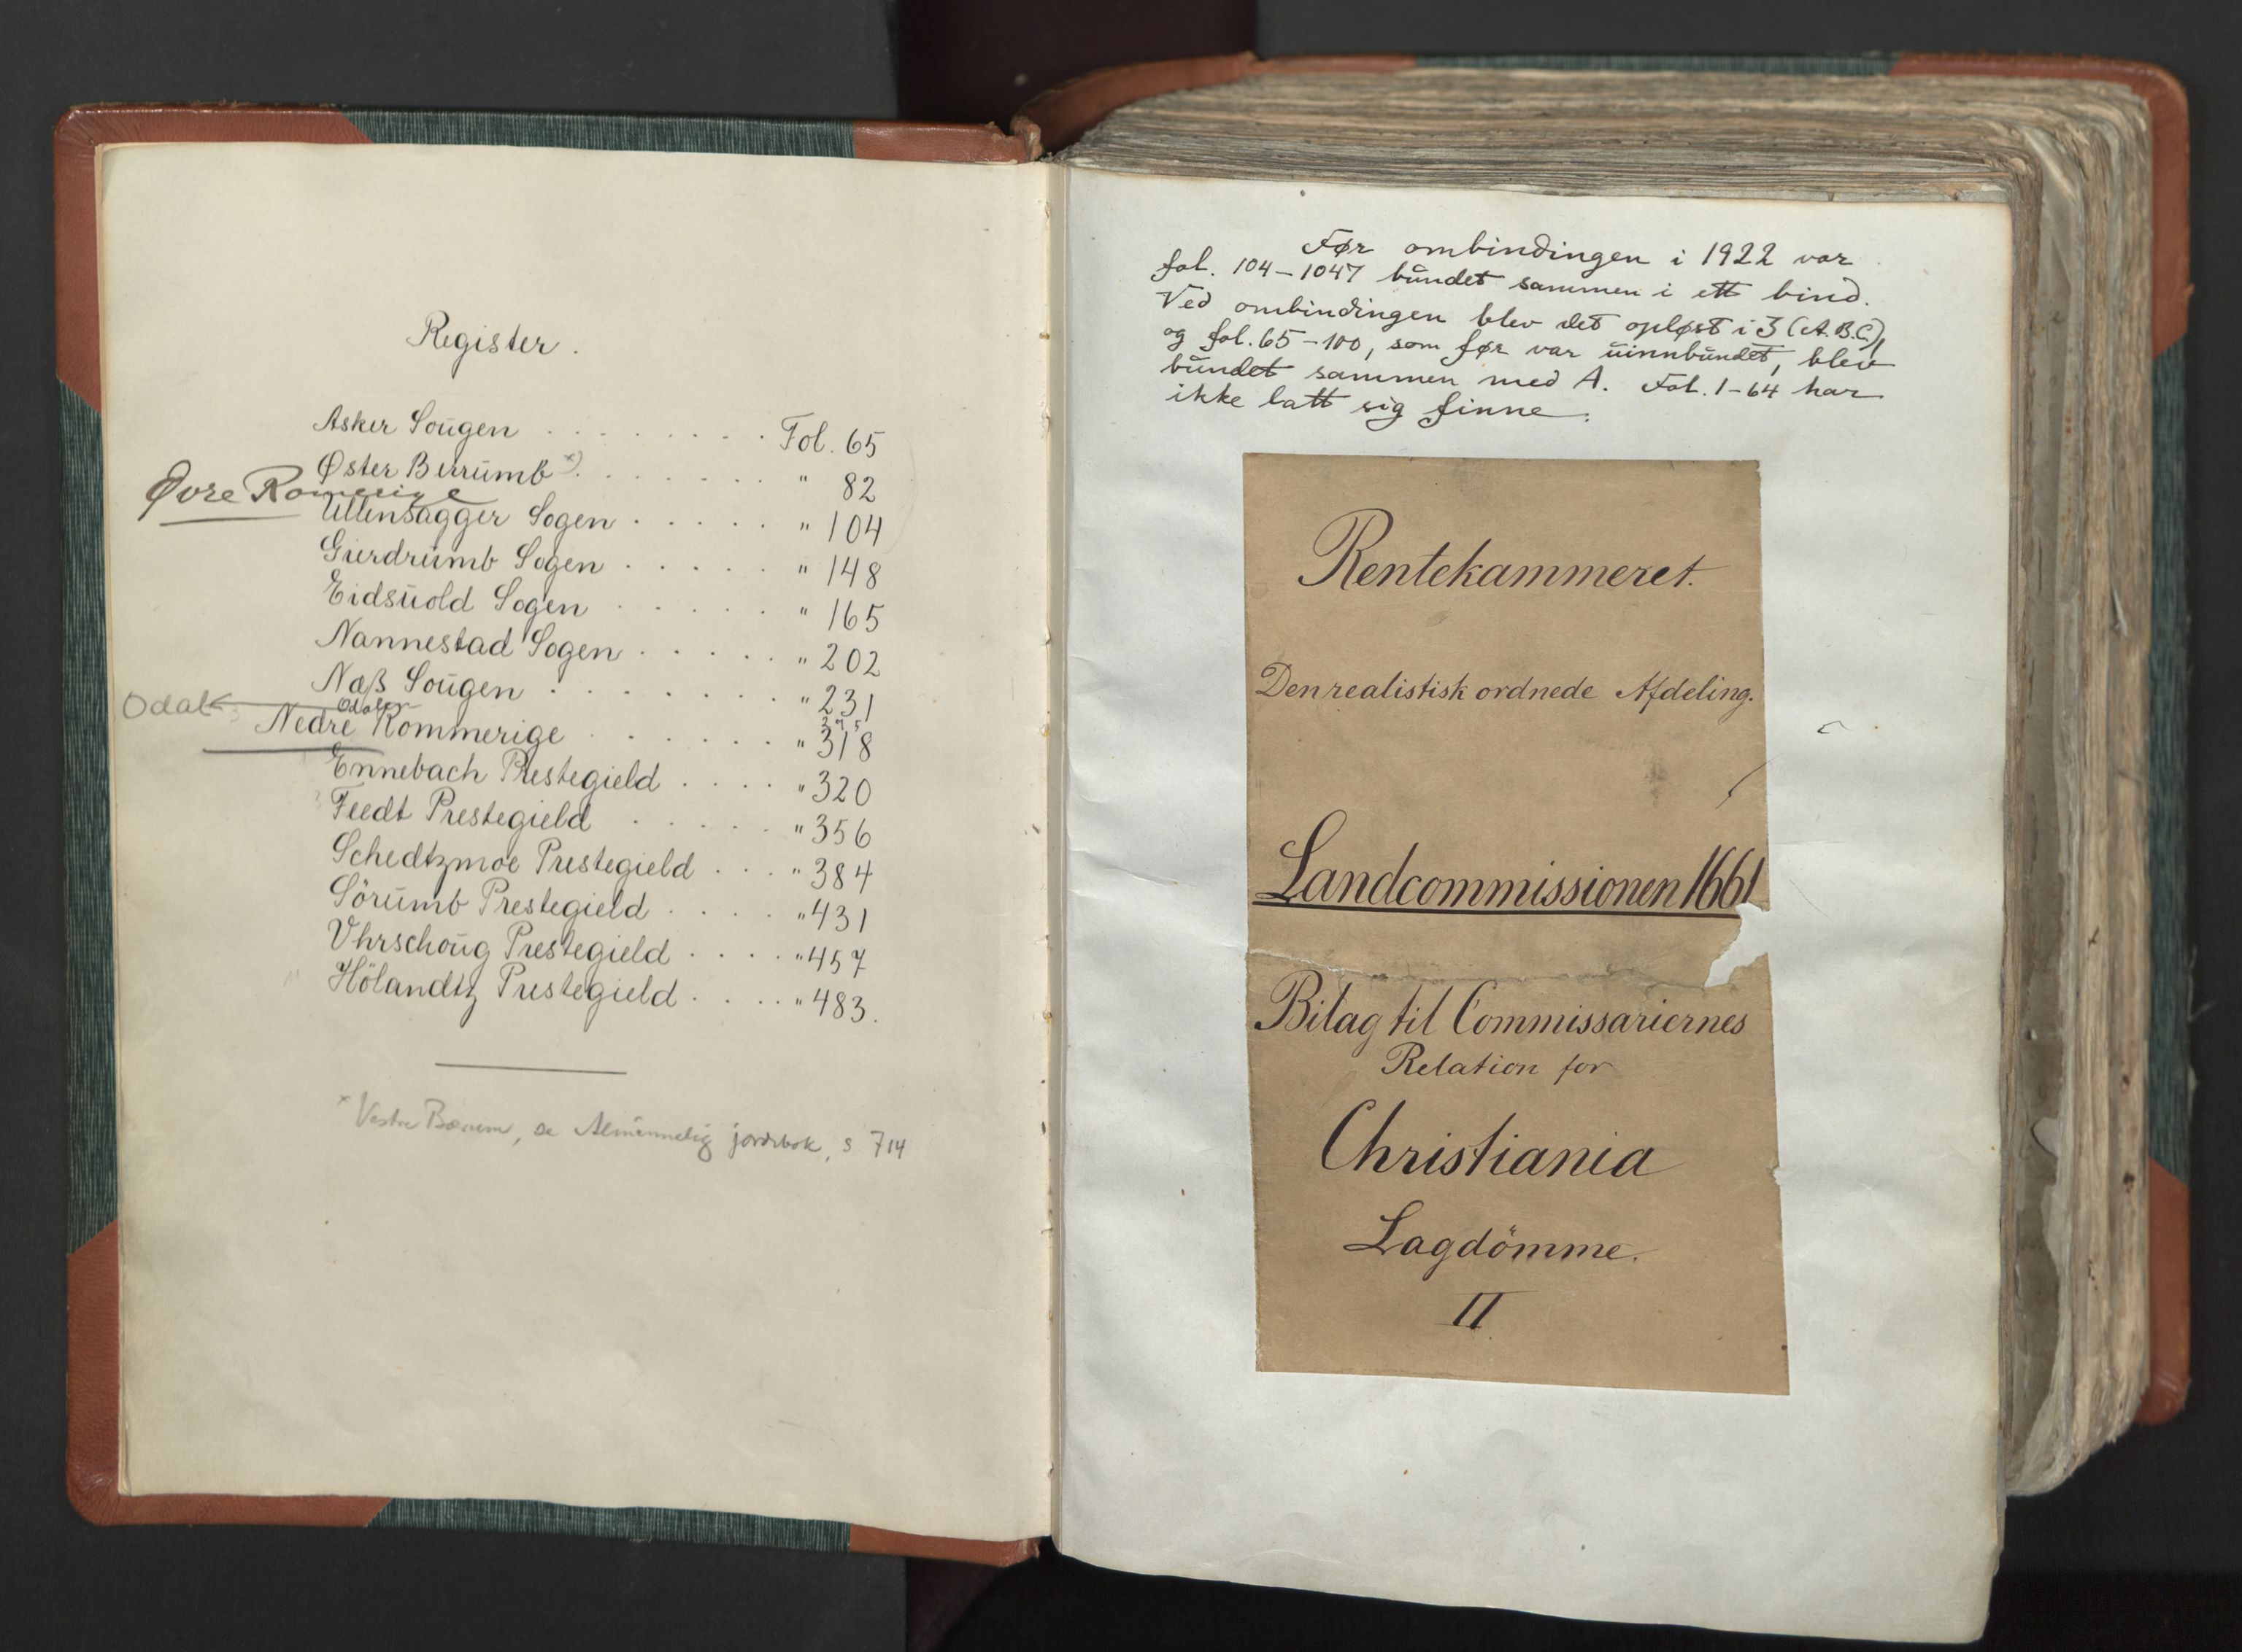 Register.
Asker Sougen . . . . . . . . Fol. 65
Øster Berrumb x) . . . . . . . " 82
Øvre Romerige
Ullensagger Sogen . . . . . " 104
Gierdrumb Sogen . . . . . " 148
Eidsuold Sogen . . . . . " 165
Nannestad Sogen . . . . . " 202
Næß Sougen . . . . . . . " 231
Odal
Odalen 295
Nedre Rommerige . . . . . . " 318
Ennebach Prestegield . . . . " 320
Feedt Prestegield . . . . . " 356
Schedtzmoe Prestegield . . . " 384
Sörumb Prestegield . . . . " 431
Vhrschoug Prestegield . . . . " 457
Hölandtz Prestegield . . . . " 483.
x Vestre Bærum, se Alminnelig jordebok, s 714
Før ombindingen i 1922 var
fol. 104-1047 bundet sammen i ett bind.
Ved ombindingen blev det opløst i 3 (A.B.C),
og fol. 65-100, som før var uinnbundet, blev
bundet sammen med A. Fol. 1-64 har
ikke latt sig finne.
Rentekammeret.
Den realistisk ordnede Afdeling.
Landcommissionen 1661
Bilag til Commissariernes
Relation for
Christiania
Lagdömme.
II